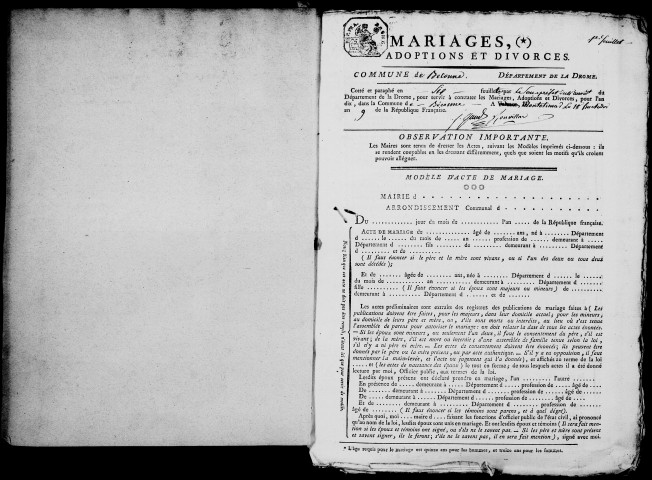 1er feuillet
MARIAGES, (*)
ADOPTIONS ET DIVORCES.
COMMUNE de DÉPARTEMENT DE LA DROME.
Cotté et paraphé en feuillets du
Département de la Drome, pour servir à constater les Mariages, Adoptions et Divorces, pour l'an
dix, dans la Commune de A
an 9 de la République Française.
OBSERVATION IMPORTANTE.
Les Maires sont tenus de dresser les Actes, suivant les Modèles imprimés ci-dessous : ils
se rendent coupables en les dressant différemment, quels que soient les motifs qu'ils croient
pouvoir alléguer.
MODÈLE D'ACTE DE MARIAGE.
MAIRIE d
ARRONDISSEMENT Communal d
DU jour du mois de l'an de la République française.
ACTE DE MARIAGE de âgé de ans, né à Département
d le du mois de an profession de demeurant à
Département d fils de demeurant à Département
d et de
( Il faut énoncer si le père et la mère sont vivans, ou si l'un des deux ou tous deux
sont décédés );
Et de âgée de ans, née à Département d le
du mois de an demeurant à Département d
fille ( Il faut énoncer si les époux sont majeurs ou mineurs ) de
demeurant à Département d et de
Les actes préliminaires sont extraits des registres des publications de mariage faites à ( Les
publications doivent être faites, pour les majeurs, dans leur domicile actuel; pour les mineurs,
au domicile de leurs père et mère, ou, s'ils sont morts ou interdits, au lieu où s'est tenue
l'assemblée de parens pour autoriser le mariage: on doit relater la date de tous les actes énoncés.
— Si les époux sont mineurs, ou seulement l'un deux, il faut le consentement du père, s'il est
vivant; de la mère, si le père est mort ou interdit; d'une assemblée de famille tenue selon la loi,
s'il n'y a ni père ni mère. — Les actes de consentement doivent être énoncés; ils peuvent être
donnés par le père ou la mère présens, ou par acte authentique. — S'il y a eu opposition, il faut
mentionner la main-levée, et l'acte ou jugement qui l'a donnée), et affichés au terme de la loi
et ( les actes de naissance des époux ) le tout en forme; de tous lesquels actes il a été donné
lecture par moi, Officier public, aux termes de la loi.
Lesdits époux présens ont déclaré prendre en mariage, l'un l'autre
En présence de demeurant à Département d profession de âgé de
De demeurant à Département d profession de âgé de
De demeurant à Département d profession de âgé de
Et de demeurant à Département d profession de
âgé de ( Il faut énoncer si les témoins sont parens, et à quel dégré ).
Après quoi, moi maire d faisant les fonctions d'officier public de l'état civil, ai prononcé
qu'au nom de la loi, lesdits époux sont unis en mariage. Et ont lesdits époux et témoins ( Il sera fait
mention si les époux et témoins ont signé, ou s'ils ne le savent pas. — Si les père et mère sont présens
et savent signer, ils le feront; s'ils ne le savent pas, il en sera fait mention ), signé avec moi.
* L'âge requis pour le mariage est quinze ans pour les hommes, et treize ans pour les femmes.